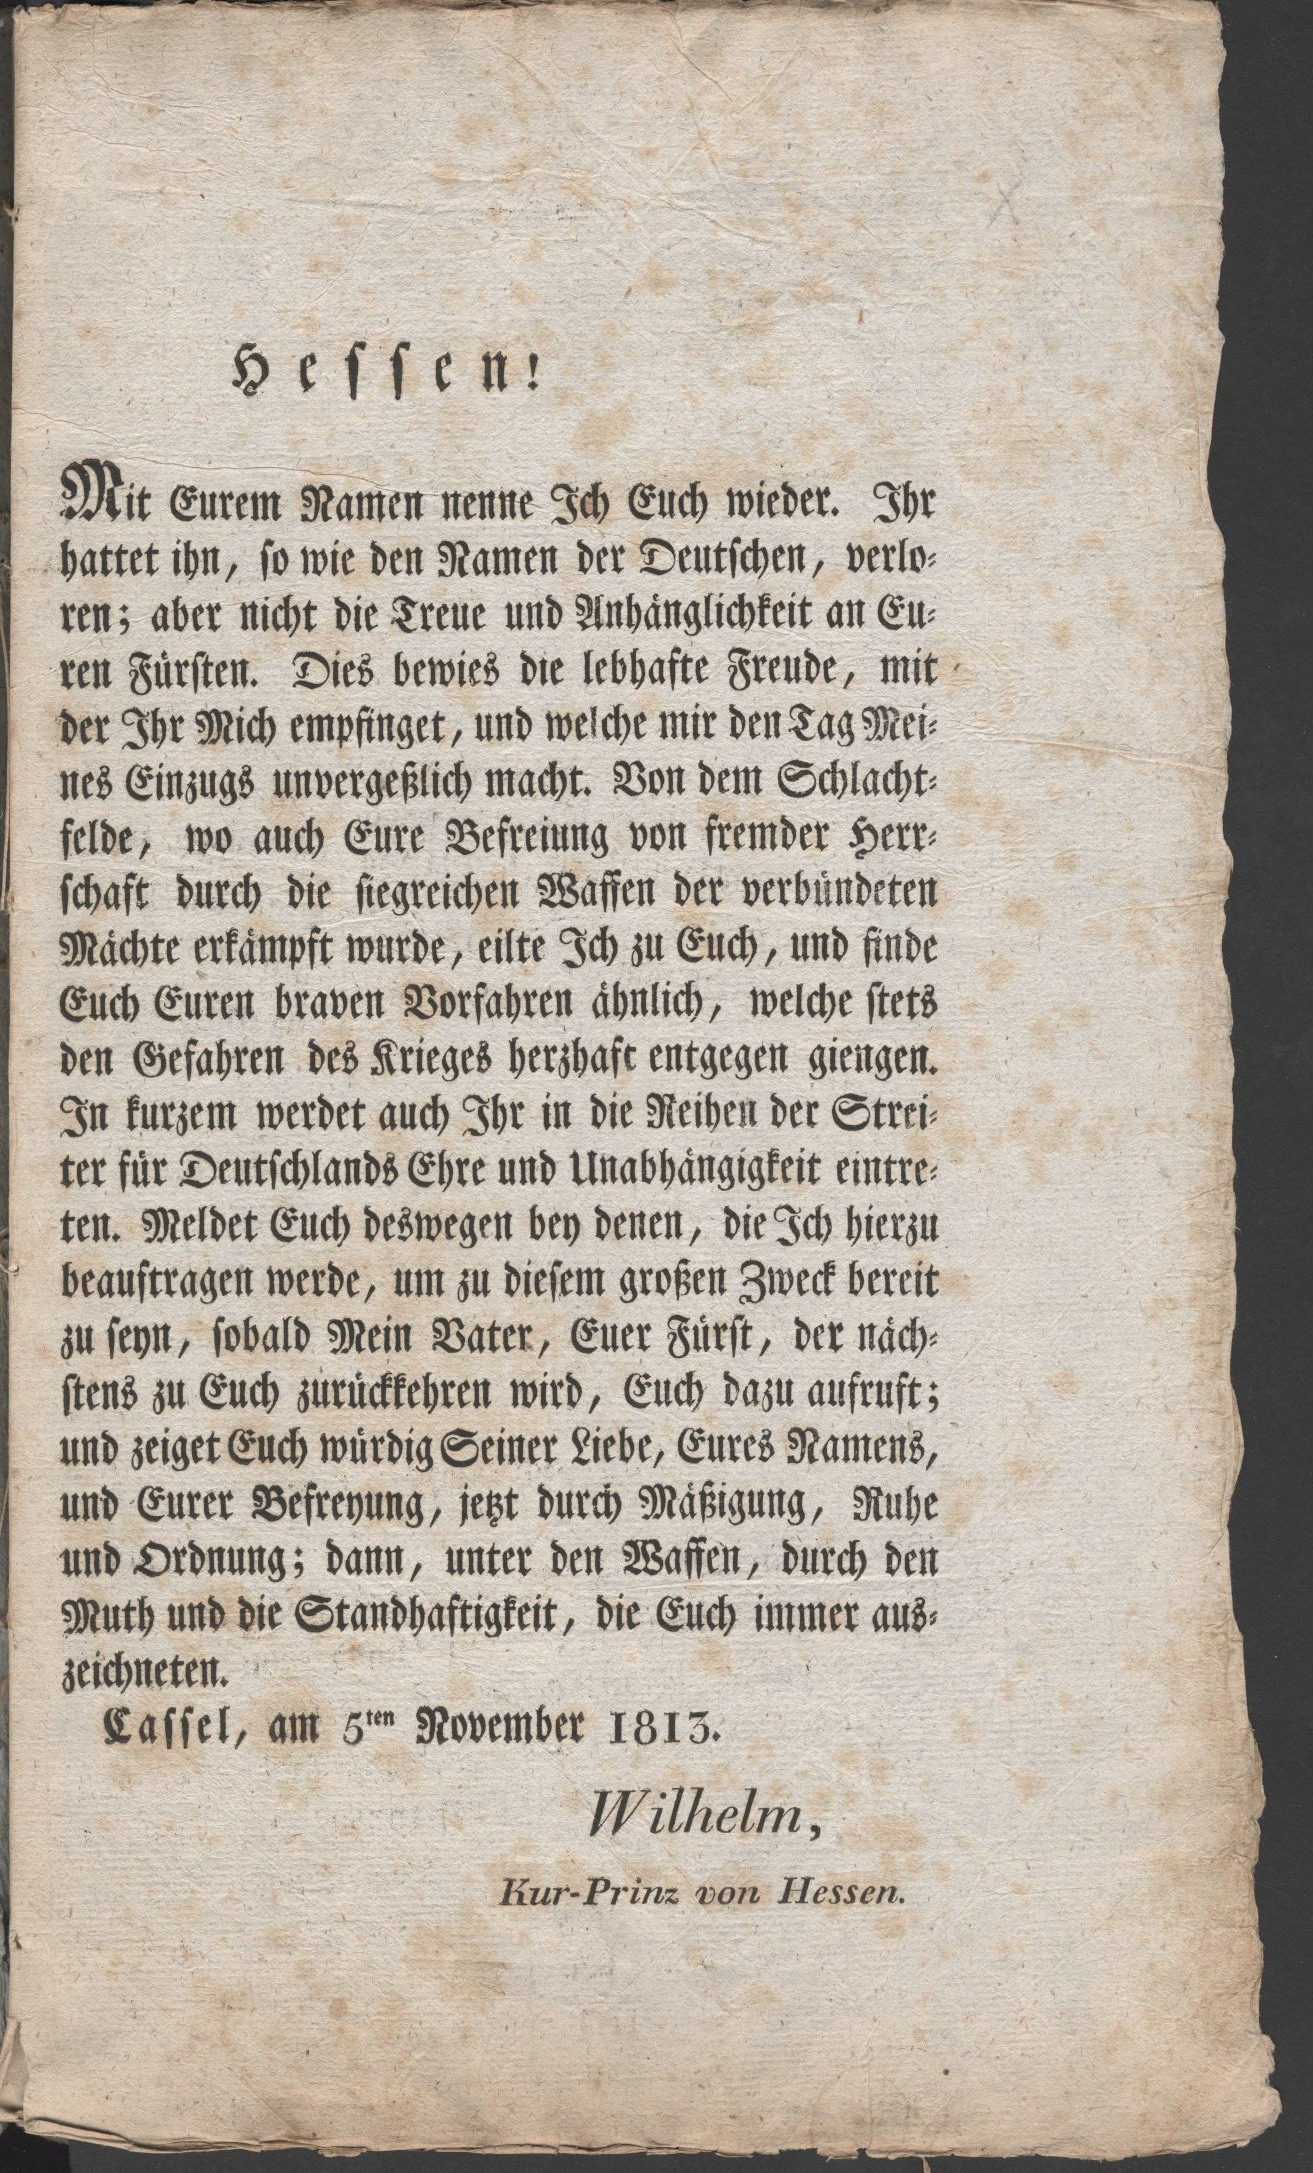 Hessen!
Mit Eurem Namen nenne Ich Euch wieder. Ihr
hattet ihn, so wie den Namen der Deutschen, verlo-
ren; aber nicht die Treue und Anhänglichkeit an Eu-
ren Fürsten. Dies bewies die lebhafte Freude, mit
der Ihr Mich empfinget, und welche mir den Tag Mei-
nes Einzugs unvergeßlich macht. Von dem Schlacht-
felde, wo auch Eure Befreiung von fremder Herr-
schaft durch die siegreichen Waffen der verbündeten
Mächte erkämpft wurde, eilte Ich zu Euch, und finde
Euch Euren braven Vorfahren ähnlich, welche stets
den Gefahren des Krieges herzhaft entgegen giengen.
In kurzem werdet auch Ihr in die Reihen der Strei-
ter für Deutschlands Ehre und Unabhängigkeit eintre-
ten. Meldet Euch deswegen bey denen, die Ich hierzu
beauftragen werde, um zu diesem großen Zweck bereit
zu seyn, sobald Mein Vater, Euer Fürst, der näch-
stens zu Euch zurückkehren wird, Euch dazu aufruft;
und zeiget Euch würdig Seiner Liebe, Eures Namens,
und Eurer Befreyung, jetzt durch Mäßigung, Ruhe
und Ordnung; dann, unter den Waffen, durch den
Muth und die Standhaftigkeit, die Euch immer aus-
zeichneten.
Cassel, am 5ten November 1813.
Wilhelm,
Kur-Prinz von Hessen.